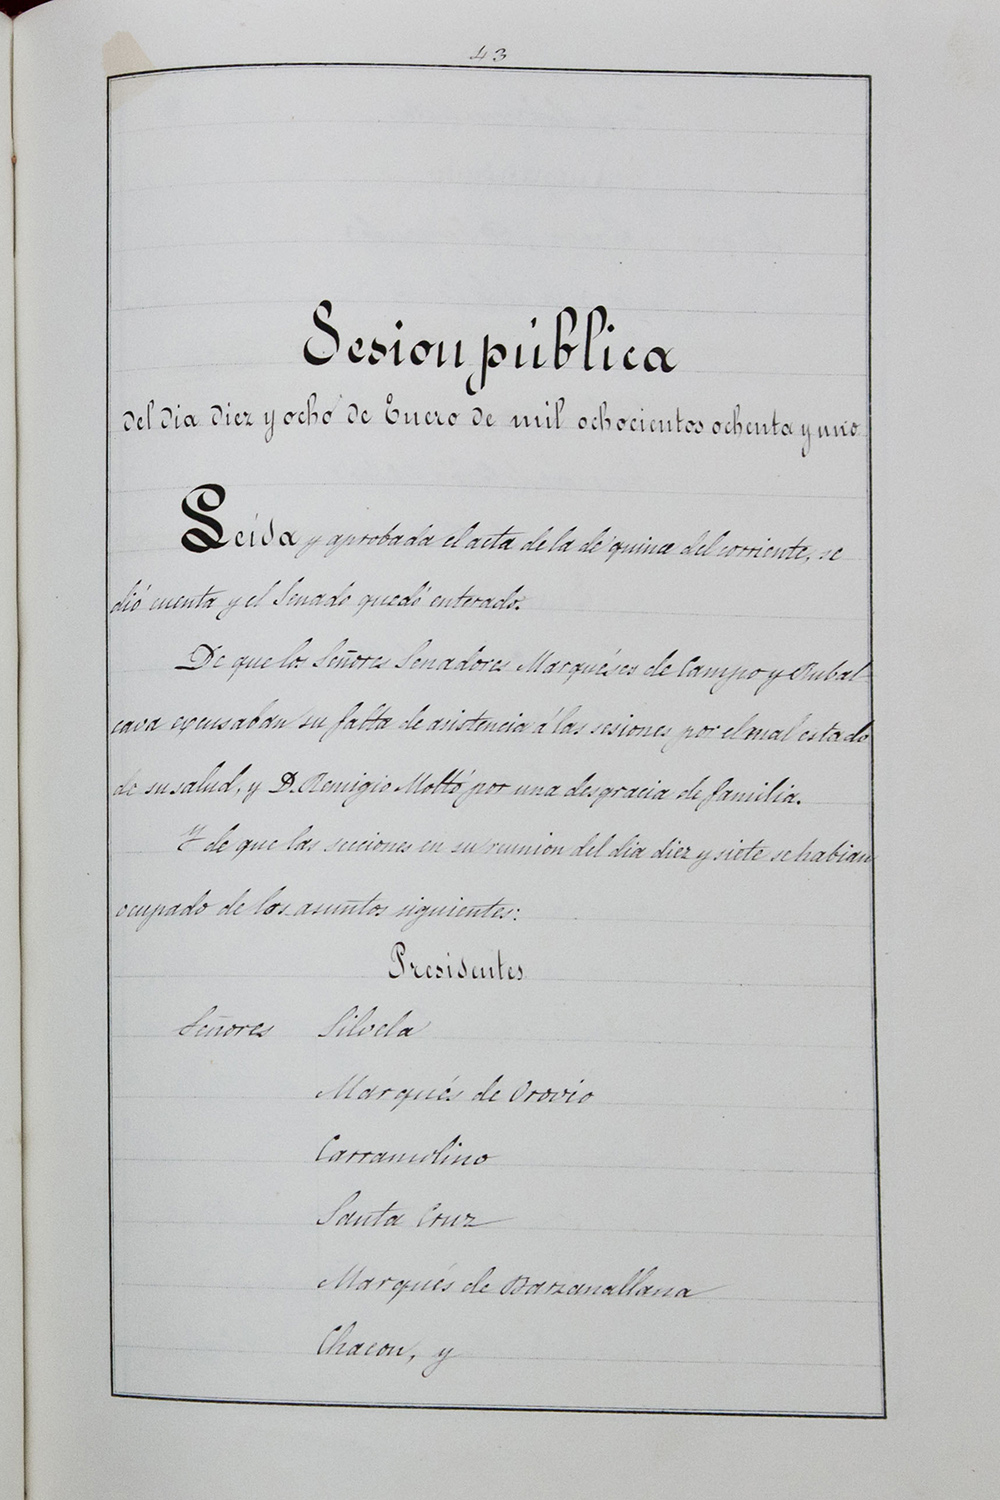 43
Sesion pública
del dia diez y ocho de Enero de mil ochocientos ochenta y uno
Leida y aprobada el acta de la de quince del corriente, se
dió cuenta y el Senado quedó enterado.
De que los Señores Senadores Marquéses de Campo y Rubal-
cava escusaban su falta de asistencia á las sesiones por el mal estado
de su salud, y D. Remigio Moltó por una desgracia de familia.
Y de que las secciones en su reunion del dia diez y siete se habian
ocupado de los asuntos siguientes:
Presidentes
Señores Silvela
Marqués de Orovio
Carramolino
Santa Cruz
Marqués de Barzanallana
Chacon, y